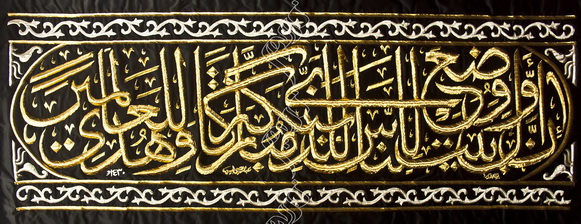 إن أول بيت وضع للناس للذي ببكة مباركا وهدى للعالمين